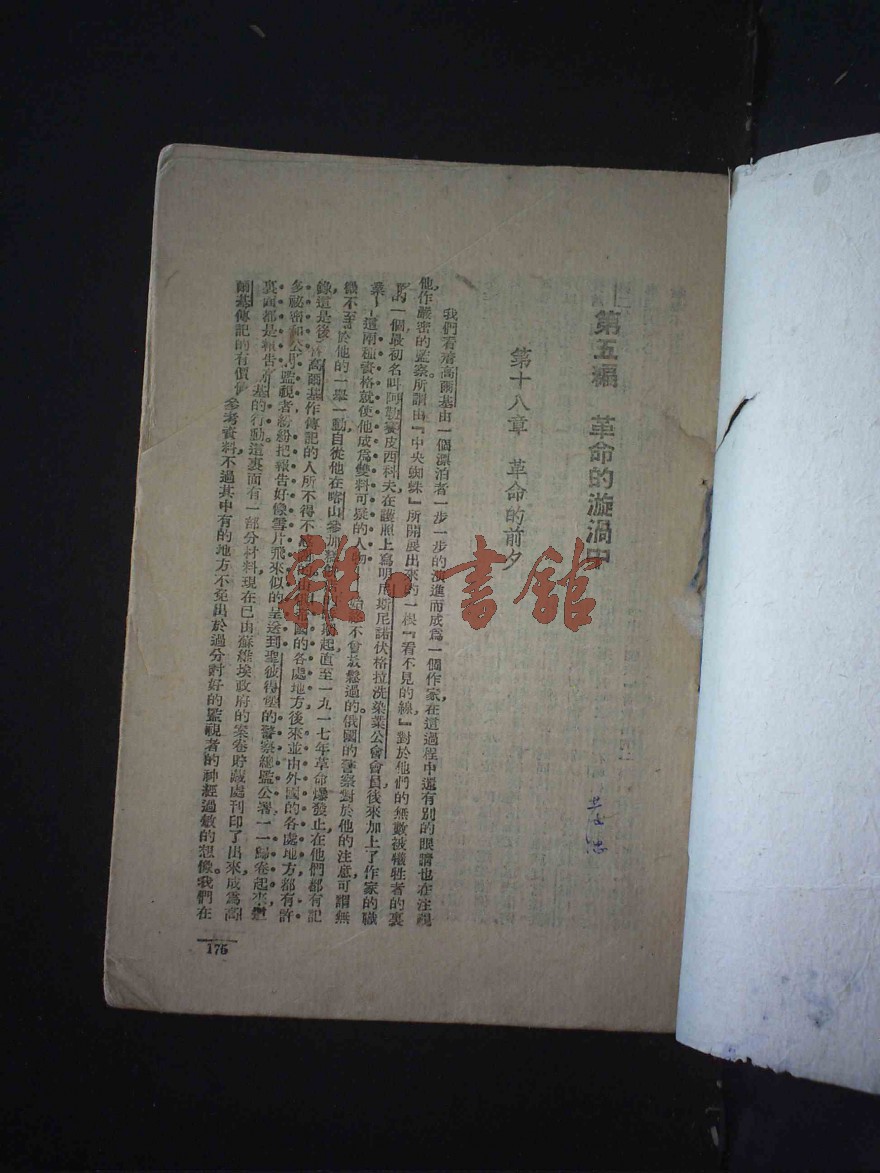 第五編 革命的漩渦中
第十八章 革命的前夕
我們看着高爾基由一個漂泊者一步一步的演進而成爲一個作家,在這過程中還有別的眼睛也在注視
他,作嚴密的監察。所謂由『中央蜘蛛』所開展出來的一根『看不見的線』對於他們的無數被犧牲者的裏
的一個,最初名叫阿歷賽皮西科夫,在護照上寫明尼斯尼諾伏格拉洗染業公會會員,後來加上了作家的職
業——這兩種資格就使他成爲雙料可疑的人物 不會放鬆過的。俄國的警察對於他的注意可謂無
微不至,於他的一舉一動,自從他在喀山參加 起,直至一九一七年革命爆發止,在他們都有記
錄,這是後 高爾基作傳記的人所不得不 國的各處地方,後來並由外國的各處地方,都有許
多祕密和公 監視者紛紛把報告好像雪片飛來似的呈送到聖彼得堡的警察總監公署,一一歸卷起來,
裏面都是報告 基的行動。這裏面有一部分材料,現在已由蘇維埃政府的案卷貯藏處刊印了出來,成爲高
爾基傳記的有價 參考資料,不過其中有的地方不免出於過分討好的監視者的神經過敏的想像。我們在
175
雜·書館